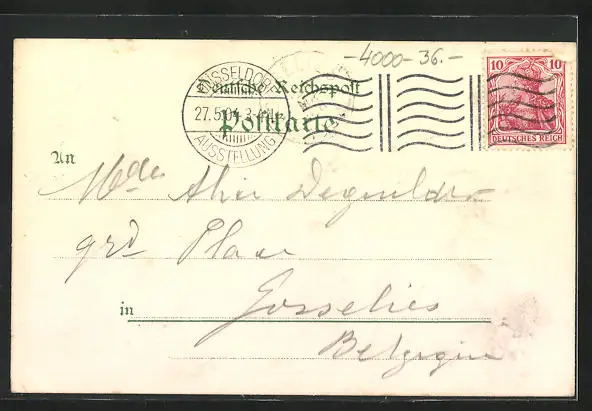 -4000-36.-
DÜSSELDORF
27.5.04.3-4N
AUSSTELLUNG
Deutsche Reichspost
Postkarte
10 10
DEUTSCHES REICH
An
Alice
grd Place
in Gosselies
Belgique